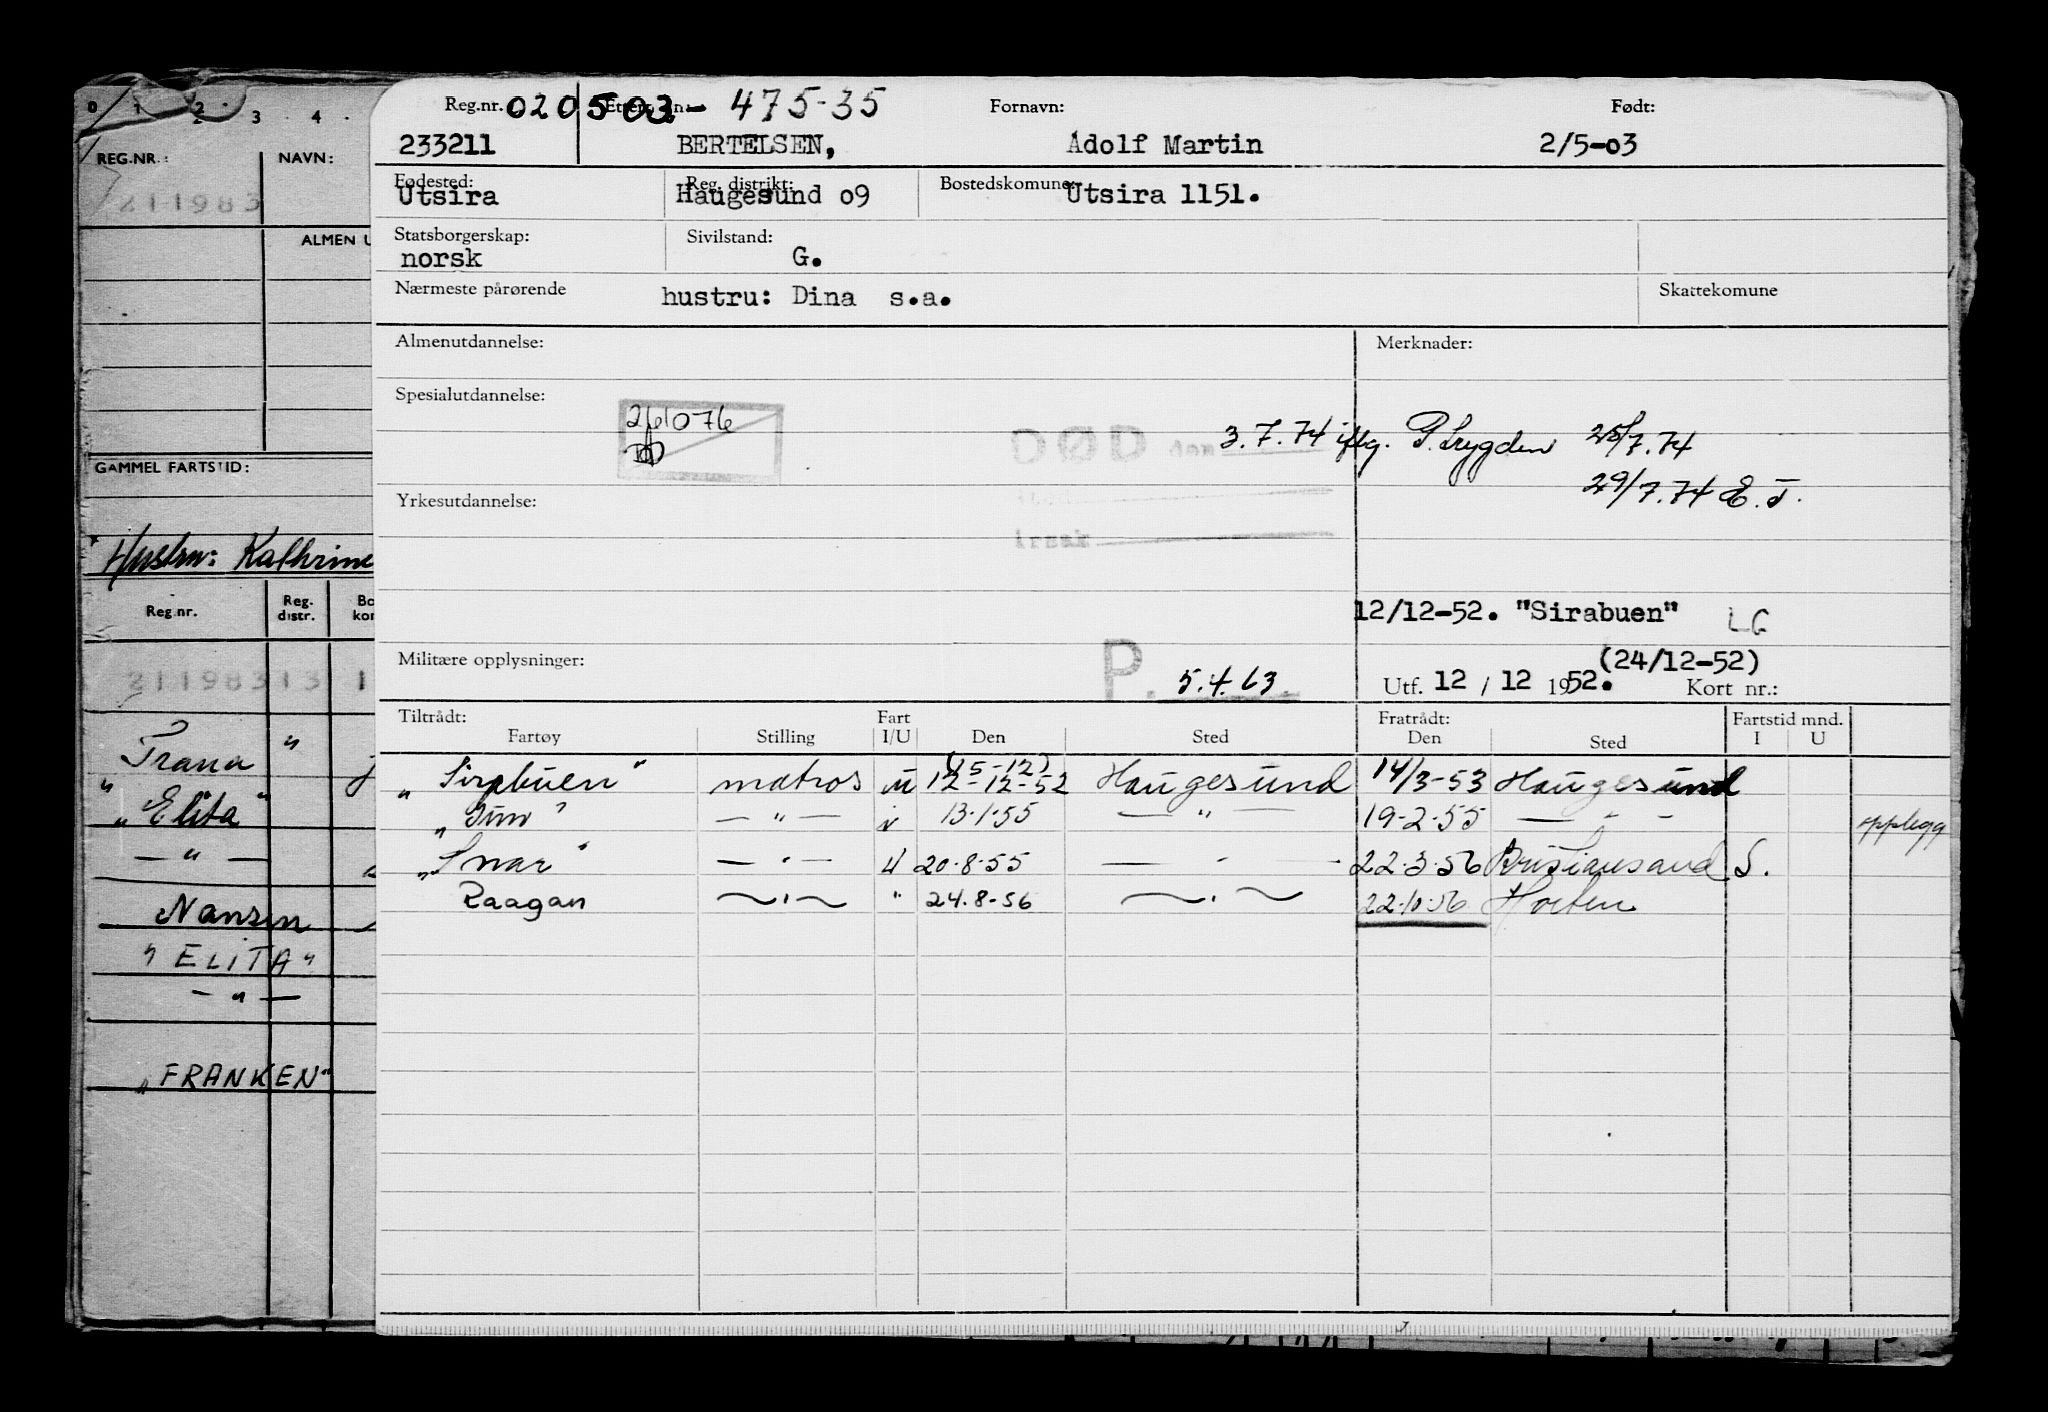 0 1 2 3 4
REG.NR.: NAVN:
211983
ALMEN U
GAMMEL FARTSTID:
Hustru: Kathrine
Reg.nr. Reg. distr. Bo kor
211983 13 1
Trana "
"Elita"
— " —
Nansen
"ELITA"
— " —
"FRANKEN"
Reg.nr. 020503- 475-35 Fornavn: Født:
233211 BERTELSEN, Adolf Martin 2/5-03
Fødested: Reg. distrikt: Bostedskomune:
Utsira Haugesund 09 Utsira 1151.
Statsborgerskap: Sivilstand:
norsk G.
Nærmeste pårørende hustru: Dina s.a. Skattekomune
Almenutdannelse: Merknader:
Spesialutdannelse:
261076
DØD den 3.7.74 iflg. P. Lygden 25/7.74
29/7.74 E. T.
Yrkesutdannelse:
årsak
12/12-52. "Sirabuen" LG
Militære opplysninger: P. 5.4.63 (24/12-52)
Utf. 12 / 12 1952. Kort nr.:
Tiltrådt: Fart Fratrådt: Fartstid mnd.
Fartøy Stilling I/U Den Sted Den Sted I U
(15-12)
"Sirabuen" matros u 12-12-52 Haugesund 14/3-53 Haugesund
— " — i 13.1.55 — " — 19-2-55 — " — opplegg
"Snar" — " — U 20.8.55 — " — 22.3.56 Kristiansand S.
Raagan — " — " 24.8-56 — " — 22.10.56 Horten